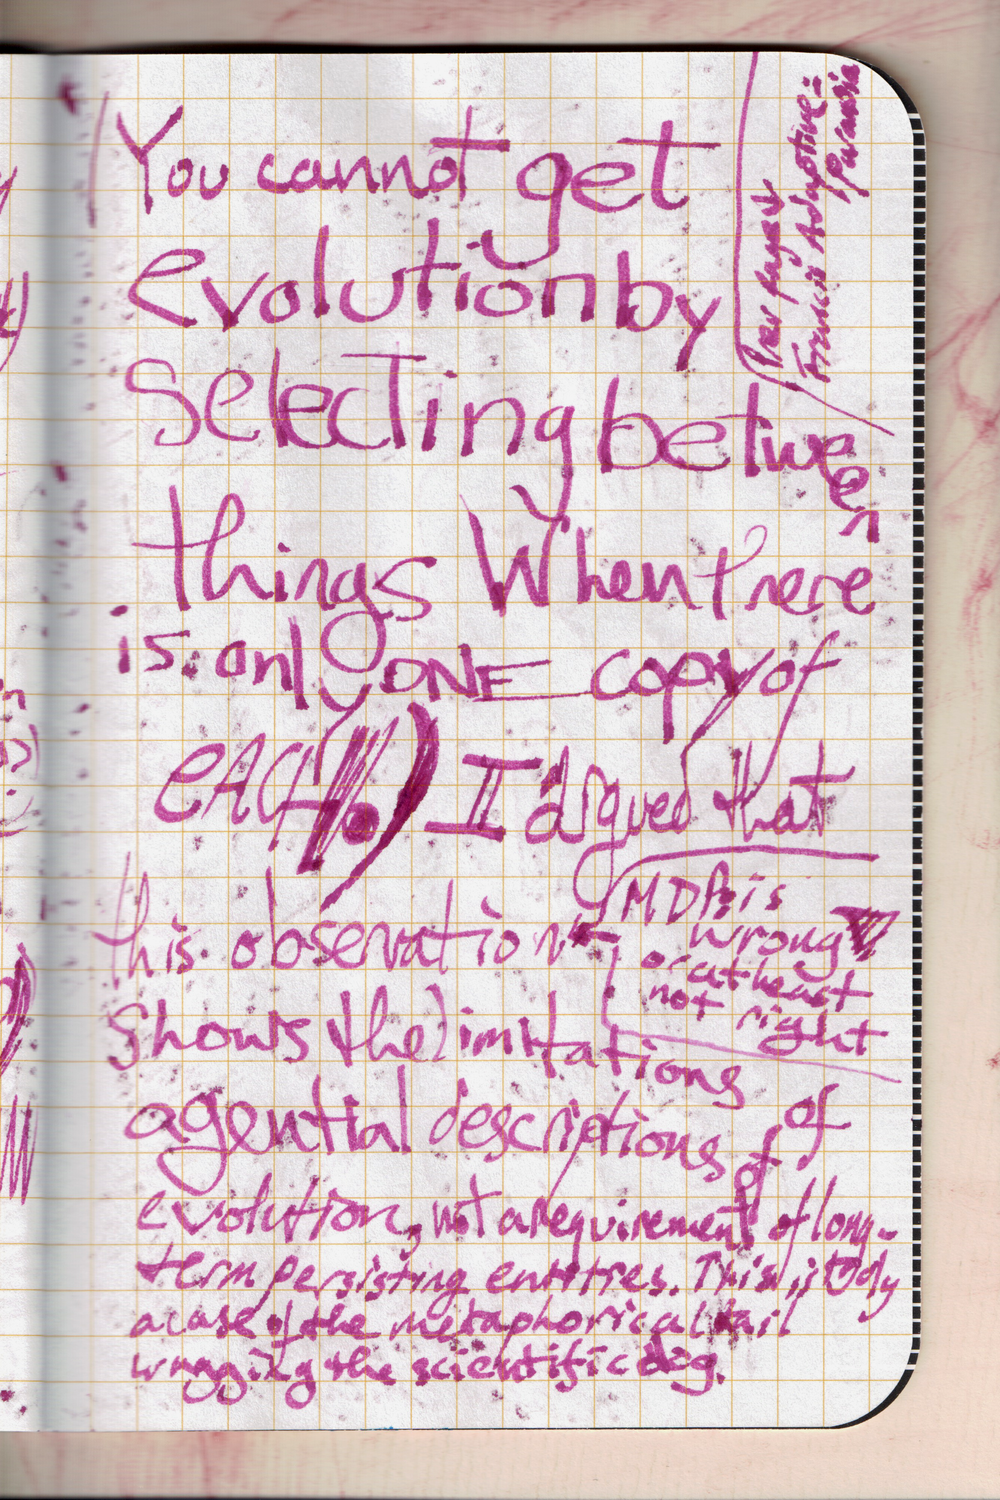 You cannot get
evolution by
Selecting betwe
e
n
things When there
is only ONE copy of
EACH.) I argued that
this observation
shows the limitations
agential descriptions of
of
evolution, not a requirement of long-
term persisting entities. This is truly
a case of the metaphorical tail
wragging the scientific dog.
MDP is
wrong
or at least
not right
Prev page ↓
Francis Adaptive =